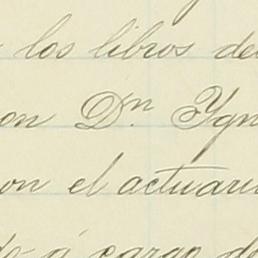 los libros de
on Dn. Ygn
on el actuari
á cargo de